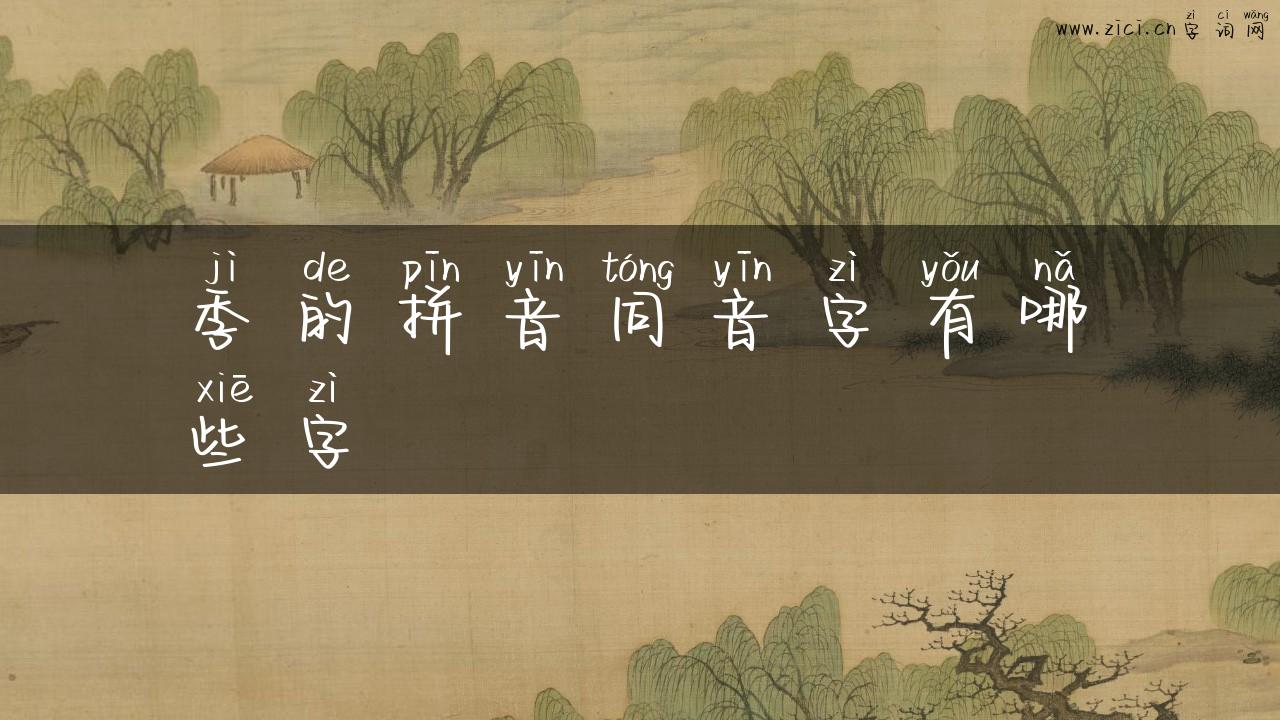 zì cí wǎng
www.zici.cn 字 词 网
jì de pīn yīn tóng yīn zì yǒu nǎ
季 的 拼 音 同 音 字 有 哪
xiē zì
些 字